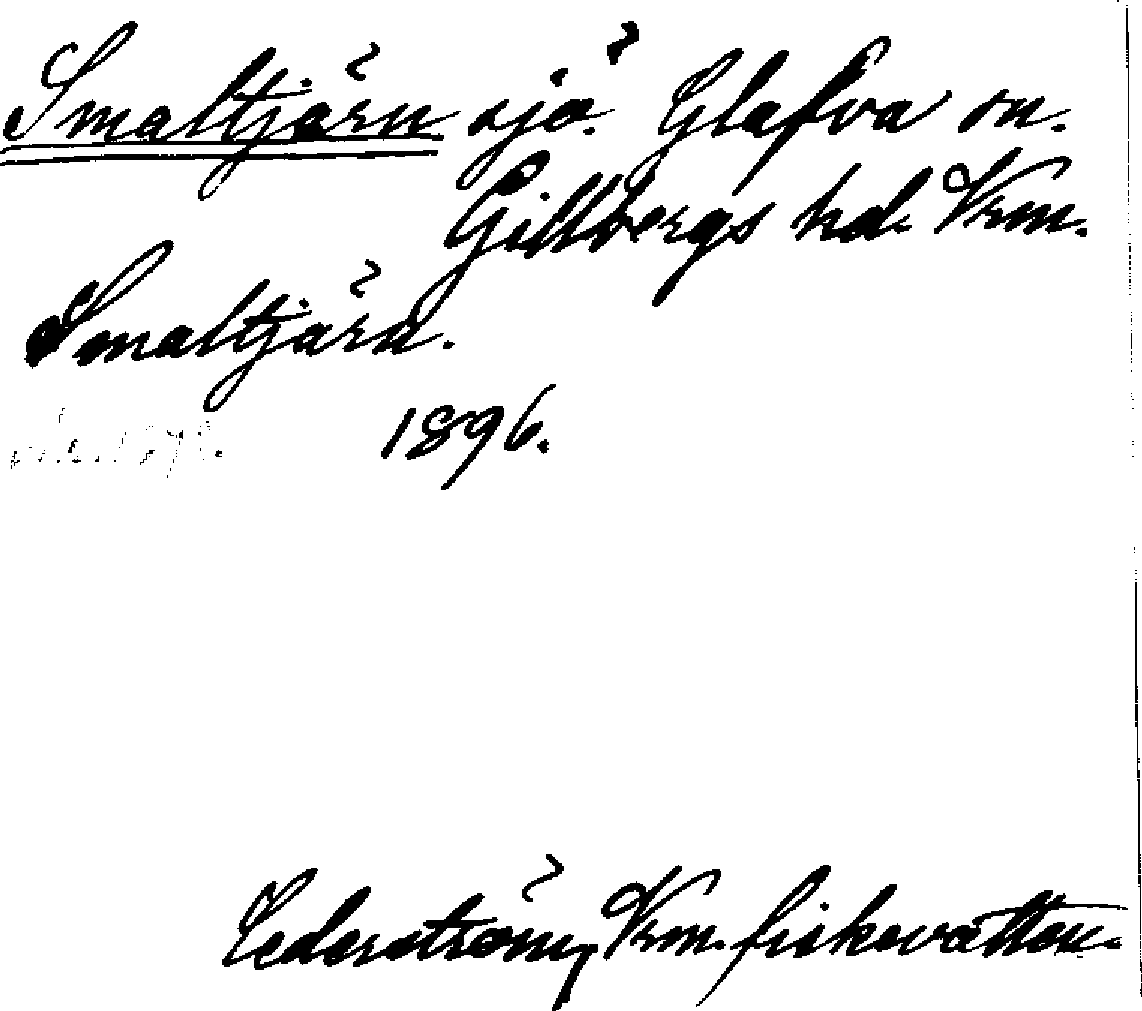 Smaltjärn sjö. Glafva sn.
Gillbergs hd. Vrm.
Smaltjärn.
1896.
Cederström, Vrm. fiskevatten.